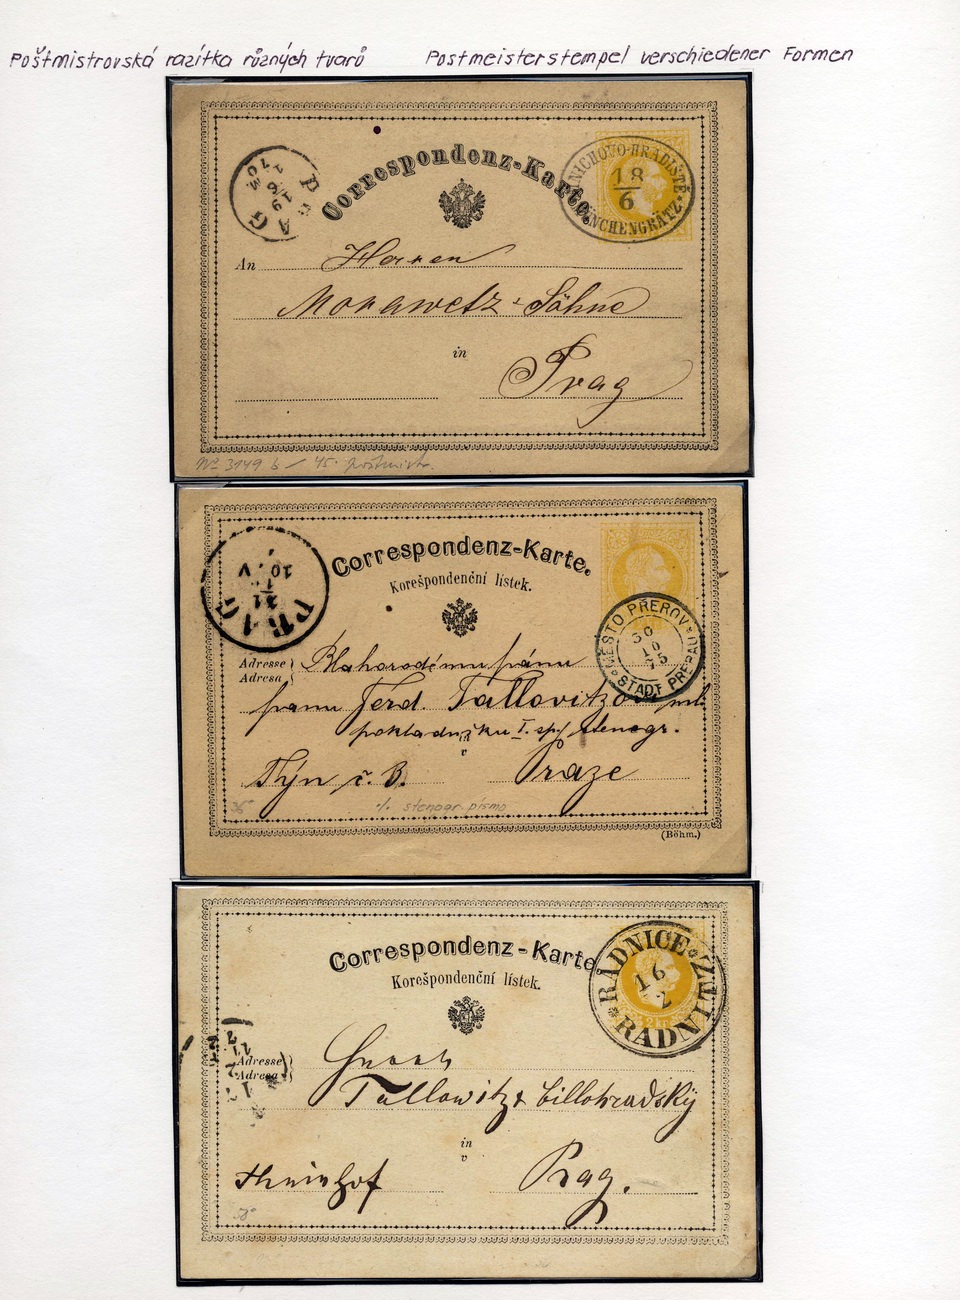 Poštmistrovská razítka různých tvarů
Postmeisterstempel verschiedener Formen
Correspondenz-Karte.
PRAG
19
6
MNICHOVO-HRADIŠTĚ
18
6
MÜNCHENGRÄTZ
An Herren
Morawetz & Söhne
in
Prag
No 3149 b / 45.
Correspondenz-Karte.
Korešpondenční lístek.
PRAG
MĚSTO PŘEROV
30
10
75
STADT PRERAU
Adresse
Adresa
Blahorodému pánu
panu Ferd. Tallovitzovi ml.
pokladníku I. sp. stenogr.
v
Týn č. 3. Praze
36
·/. stenogr. písmo
(Böhm.)
Correspondenz-Karte
Korešpondenční lístek.
RADNICE
16
2
RADNITZ
Adresse
Adresa
Tallowitz & Billohradský
in
v
Theinhof Prag.